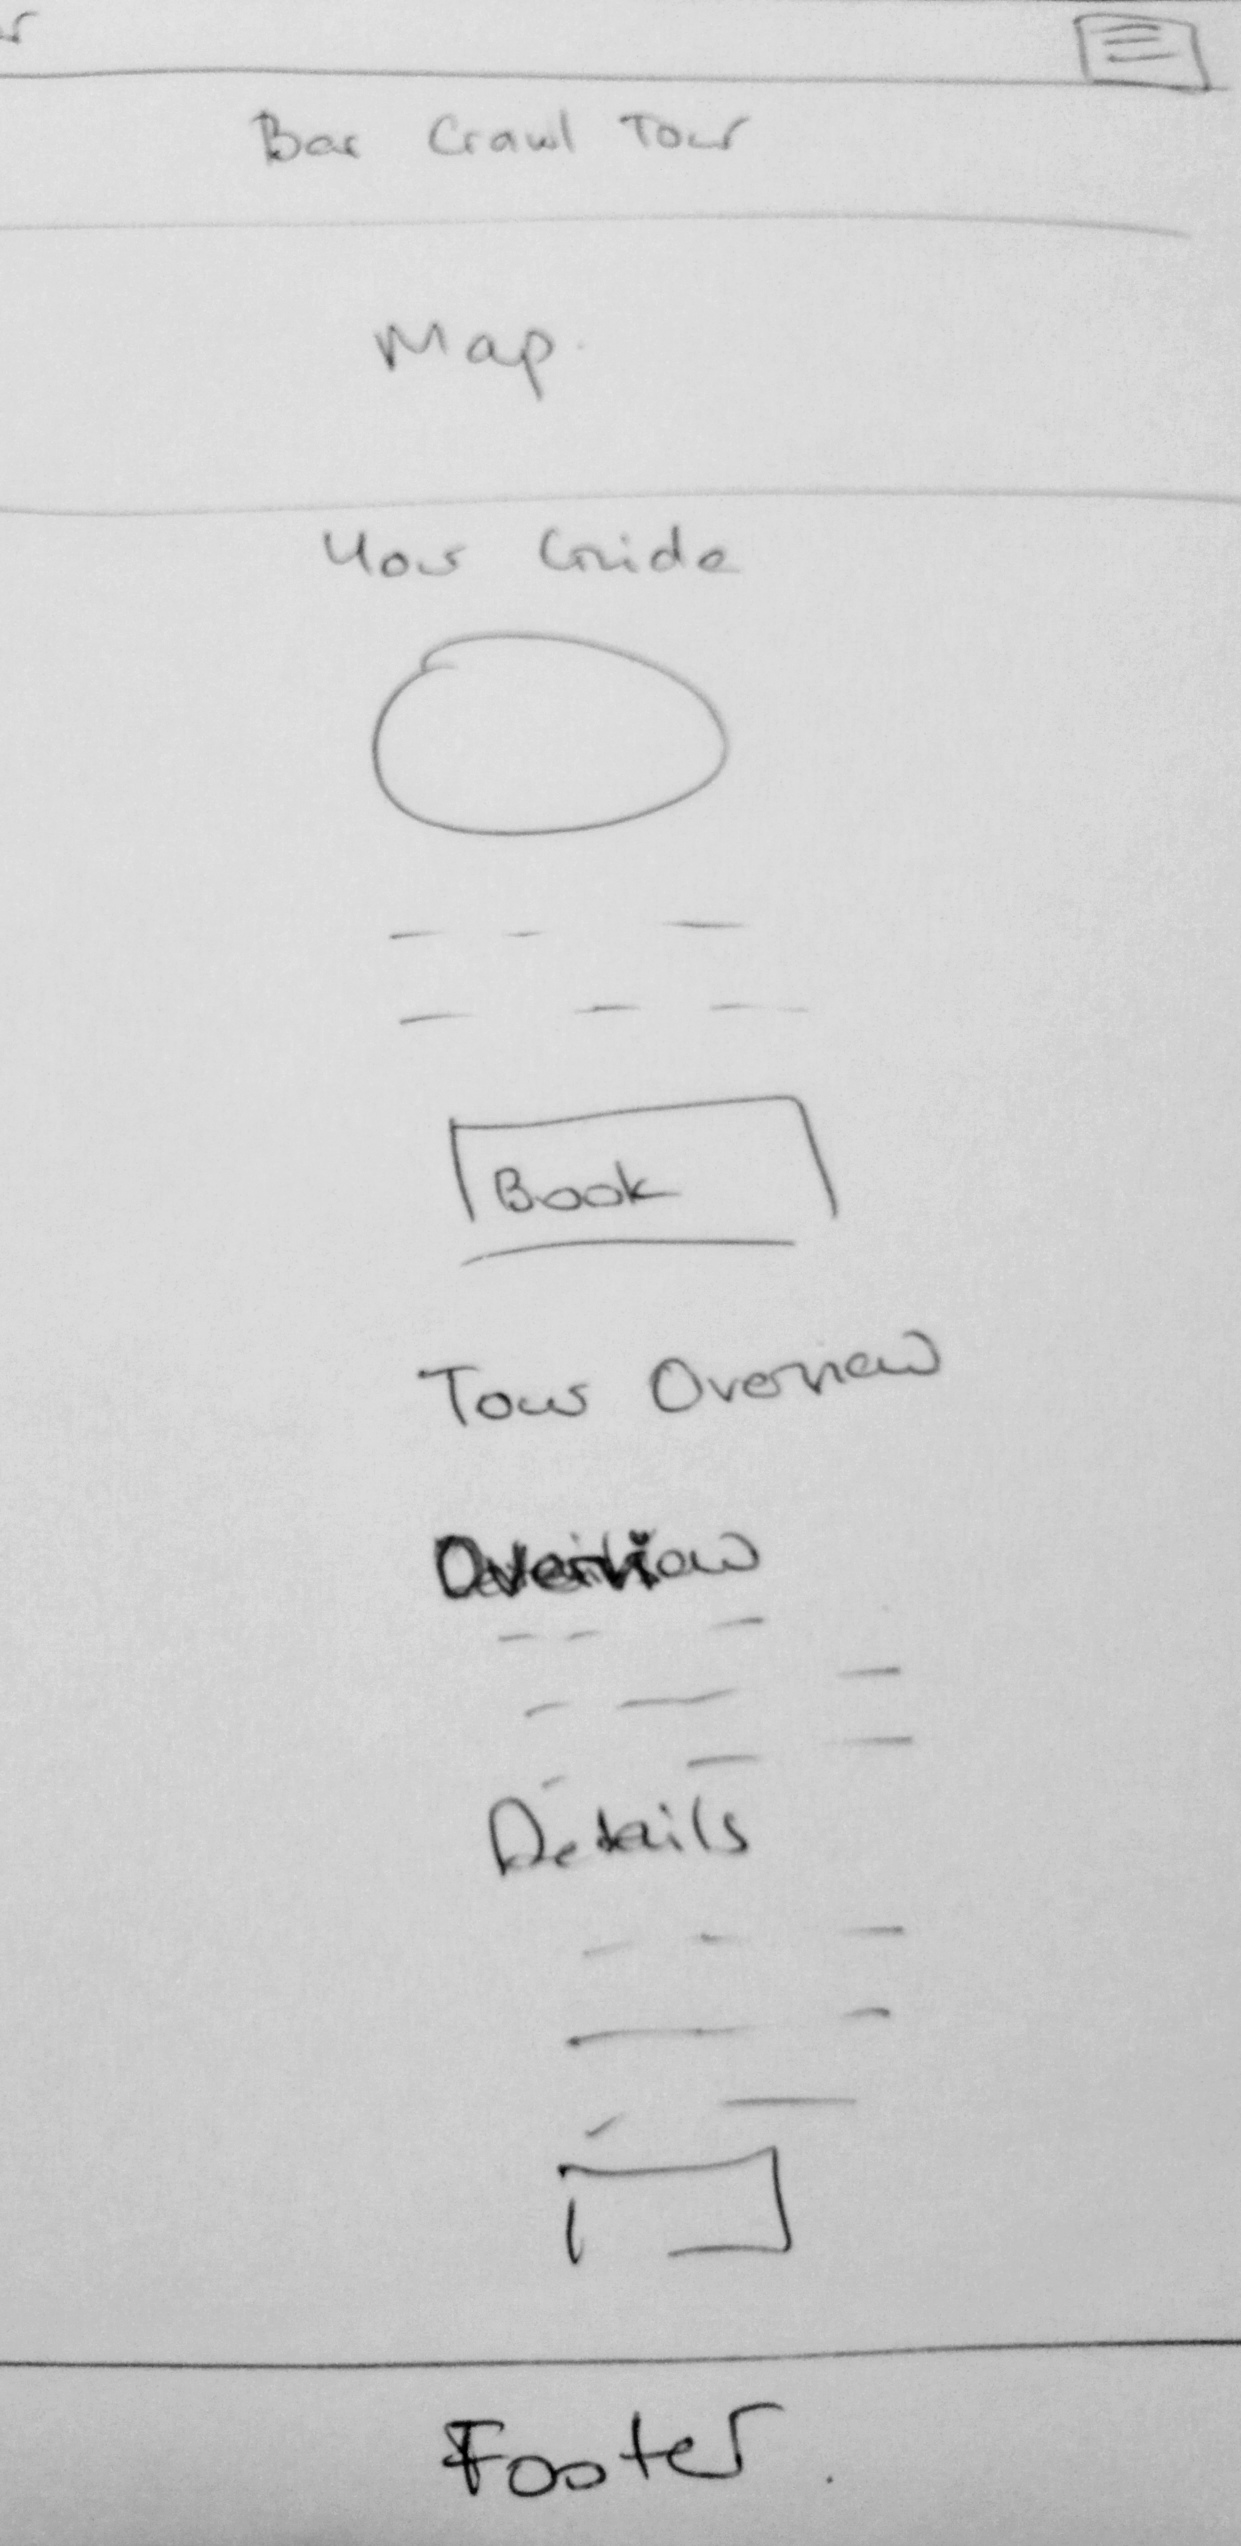 Bar Crawl Tour
Map
Your Guide
Book
Tour Overview
Overview
Details
Footer.